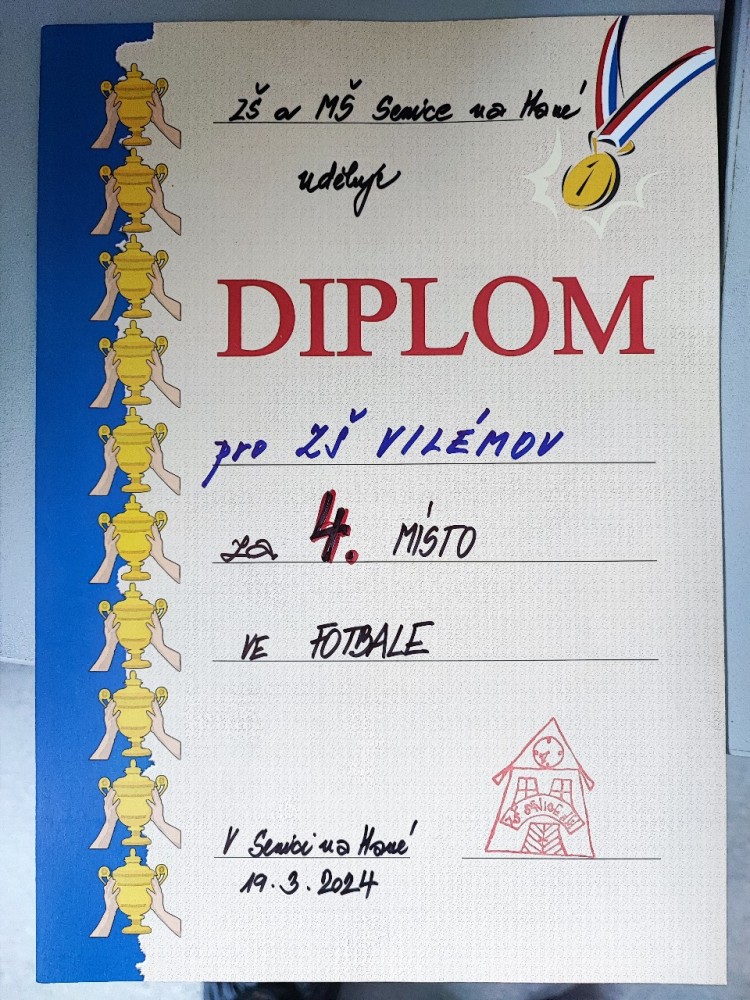 ZŠ a MŠ Senice na Hané
uděluje
1
DIPLOM
pro ZŠ VILÉMOV
za 4. MÍSTO
VE FOTBALE
ZŠ SENICE n/H
V Senici na Hané
19.3.2024